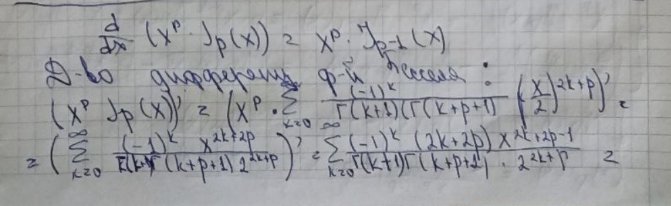 d/dx (x^p · J_p(x)) = x^p · J_{p-1}(x)
Д-во дифференц ф-й Бесселя:
(x^p J_p(x))' = (x^p · ∑_{k=0}^∞ (-1)^k / Γ(k+1)(Γ(k+p+1) (x/2)^{2k+p})' =
= (∑_{k=0}^∞ (-1)^k x^{2k+2p} / Γ(k+1)Γ(k+p+1) 2^{2k+p})' = ∑_{k=0}^∞ (-1)^k (2k+2p) x^{2k+2p-1} / Γ(k+1)Γ(k+p+1) · 2^{2k+p} =